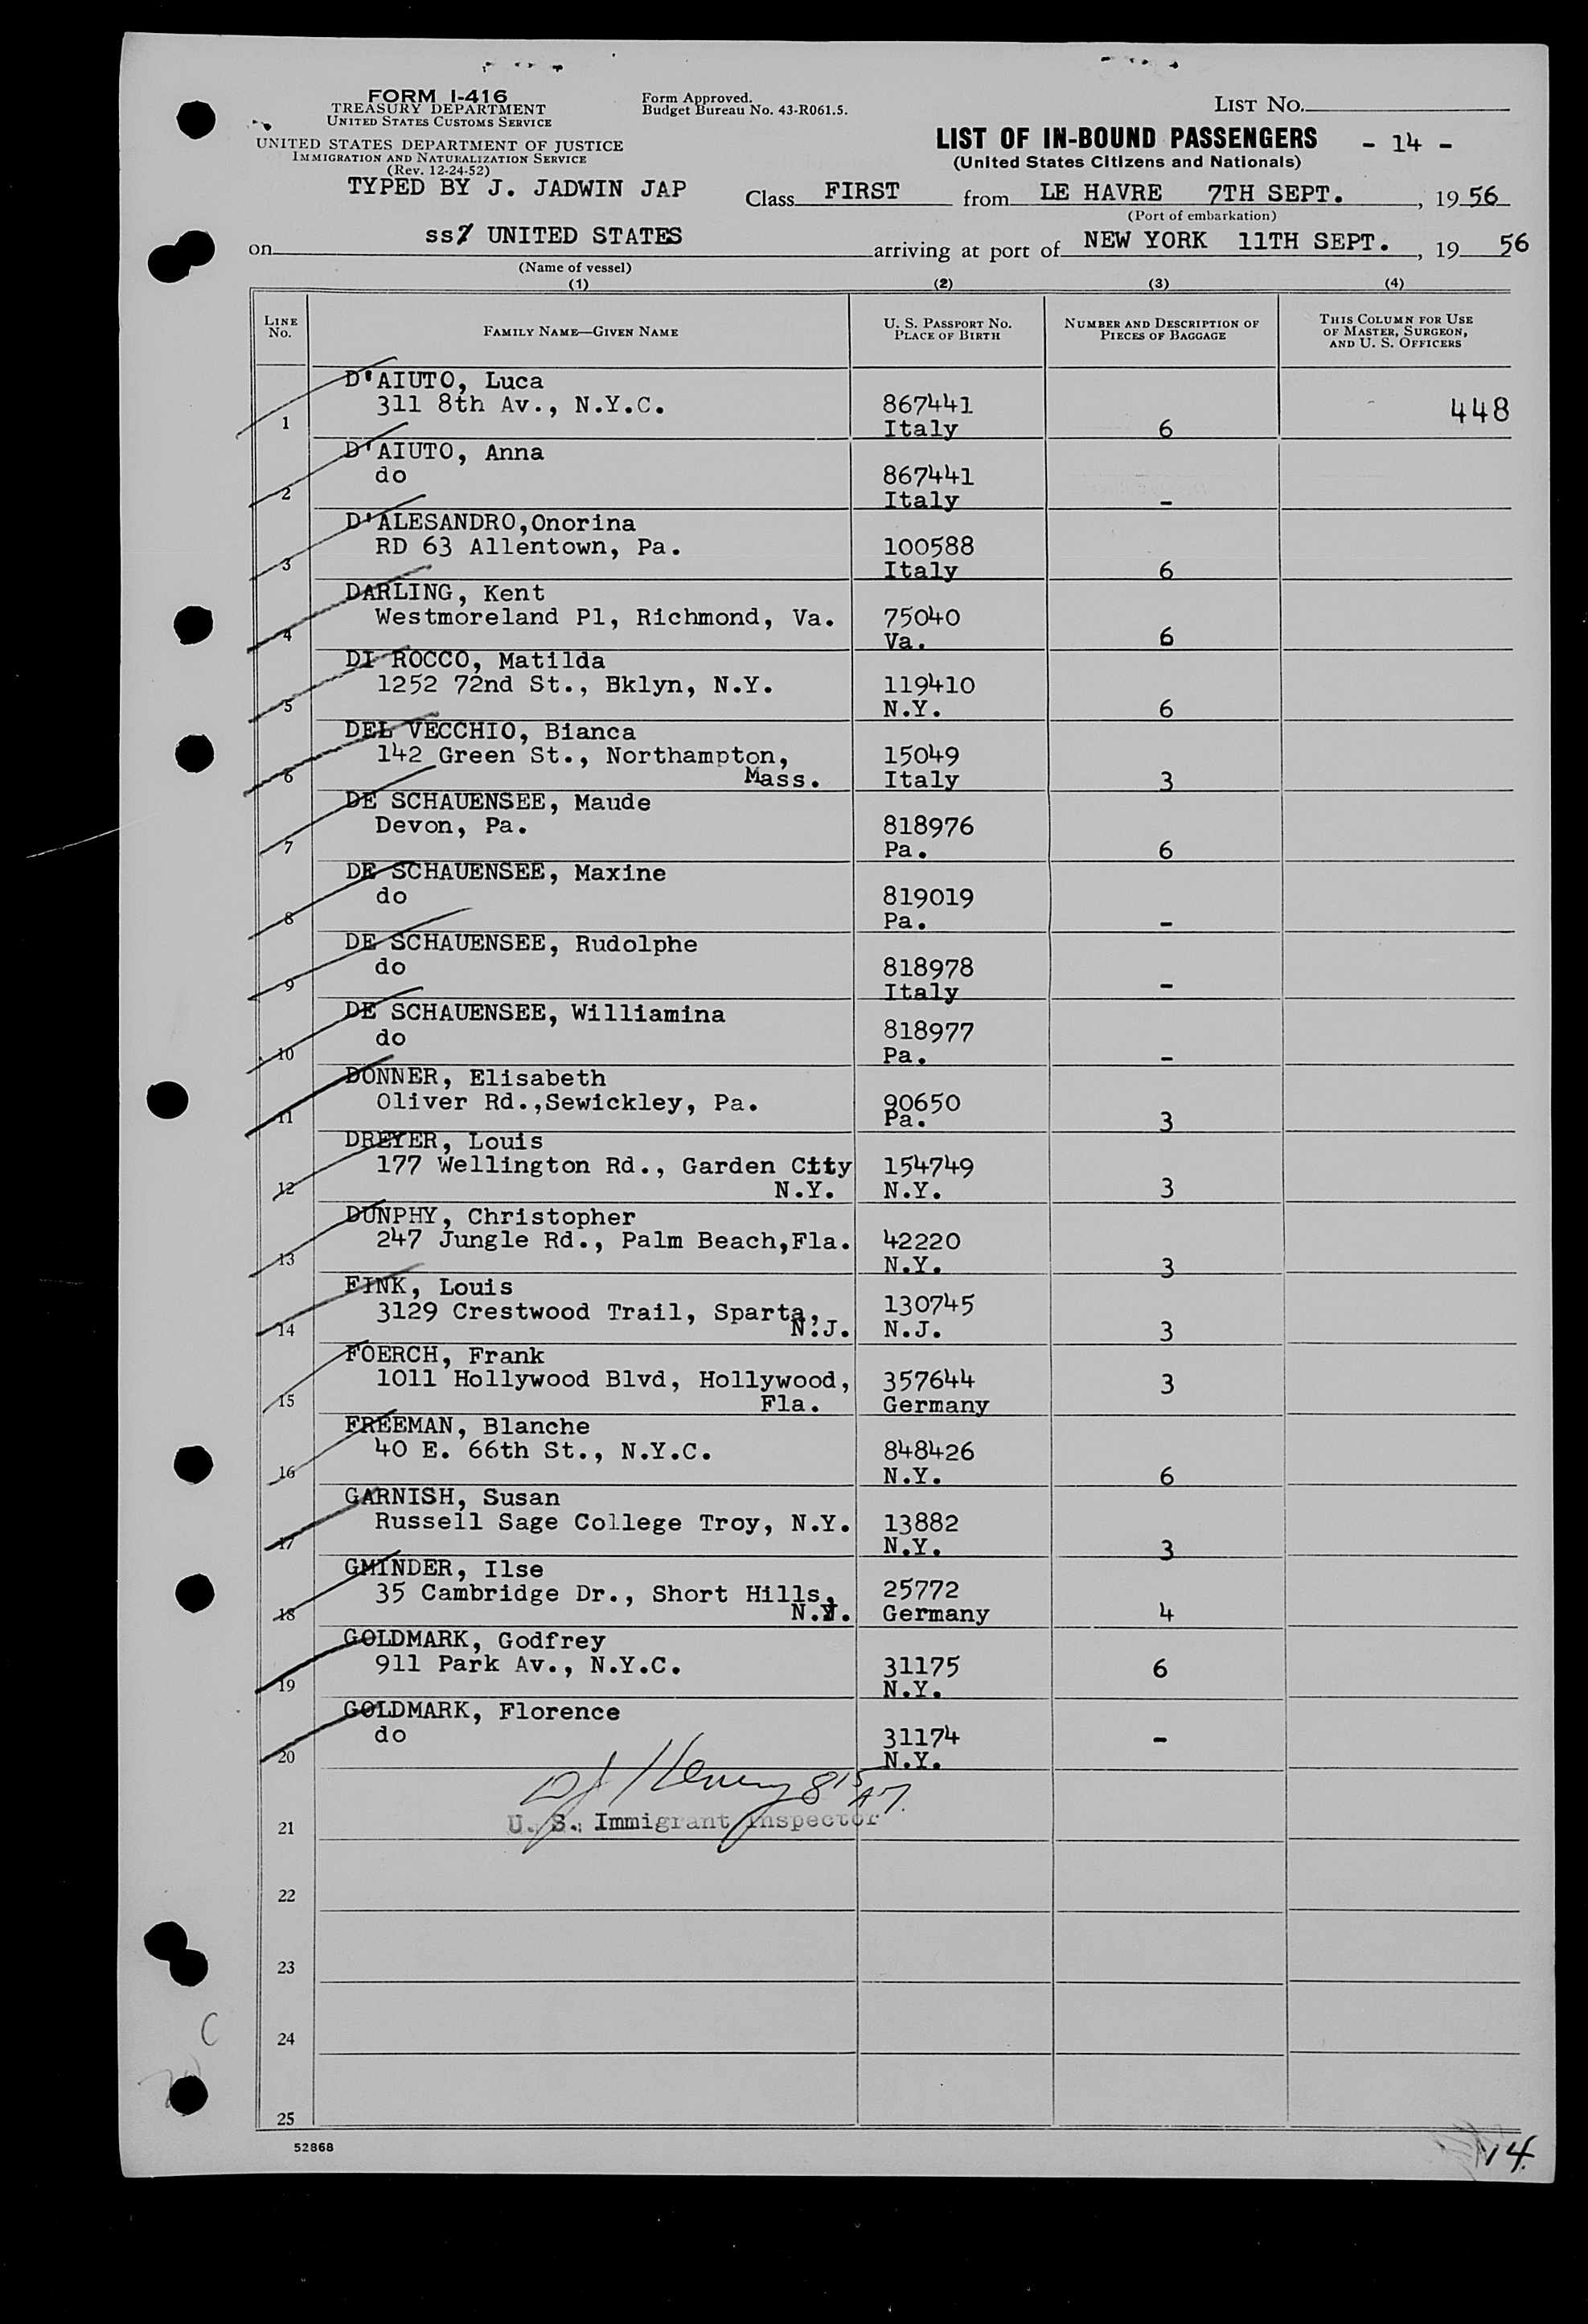 FORM I-416
TREASURY DEPARTMENT
UNITED STATES CUSTOMS SERVICE
UNITED STATES DEPARTMENT OF JUSTICE
IMMIGRATION AND NATURALIZATION SERVICE
(Rev. 12-24-52)
TYPED BY J. JADWIN JAP
Form Approved.
Budget Bureau No. 43-R061.5.
LIST NO.
LIST OF IN-BOUND PASSENGERS - 14 -
(United States Citizens and Nationals)
Class FIRST from LE HAVRE 7TH SEPT., 19 56
(Port of embarkation)
on ss UNITED STATES arriving at port of NEW YORK 11TH SEPT., 19 56
(Name of vessel)
(1) (2) (3) (4)
LINE NO. FAMILY NAME—GIVEN NAME U. S. PASSPORT NO. PLACE OF BIRTH NUMBER AND DESCRIPTION OF PIECES OF BAGGAGE THIS COLUMN FOR USE OF MASTER, SURGEON, AND U. S. OFFICERS
D'AIUTO, Luca
311 8th Av., N.Y.C. 867441 448
1 Italy 6
D'AIUTO, Anna
do 867441
2 Italy -
D'ALESANDRO,Onorina
RD 63 Allentown, Pa. 100588
3 Italy 6
DARLING, Kent
Westmoreland Pl, Richmond, Va. 75040
4 Va. 6
DI ROCCO, Matilda
1252 72nd St., Bklyn, N.Y. 119410
5 N.Y. 6
DEL VECCHIO, Bianca
142 Green St., Northampton, 15049
6 Mass. Italy 3
DE SCHAUENSEE, Maude
Devon, Pa. 818976
7 Pa. 6
DE SCHAUENSEE, Maxine
do 819019
8 Pa. -
DE SCHAUENSEE, Rudolphe
do 818978
9 Italy -
DE SCHAUENSEE, Williamina
do 818977
10 Pa. -
DONNER, Elisabeth
Oliver Rd.,Sewickley, Pa. 90650
11 Pa. 3
DREYER, Louis
177 Wellington Rd., Garden City 154749
12 N.Y. N.Y. 3
DUNPHY, Christopher
247 Jungle Rd., Palm Beach,Fla. 42220
13 N.Y. 3
FINK, Louis
3129 Crestwood Trail, Sparta, 130745
14 N.J. N.J. 3
FOERCH, Frank
1011 Hollywood Blvd, Hollywood, 357644 3
15 Fla. Germany
FREEMAN, Blanche
40 E. 66th St., N.Y.C. 848426
16 N.Y. 6
GARNISH, Susan
Russell Sage College Troy, N.Y. 13882
17 N.Y. 3
GMINDER, Ilse
35 Cambridge Dr., Short Hills, 25772
18 N.J. Germany 4
GOLDMARK, Godfrey
911 Park Av., N.Y.C. 31175 6
19 N.Y.
GOLDMARK, Florence
do 31174 -
20 N.Y.
U. S. Immigrant Inspector
21
22
23
C
24
25
52868
14.